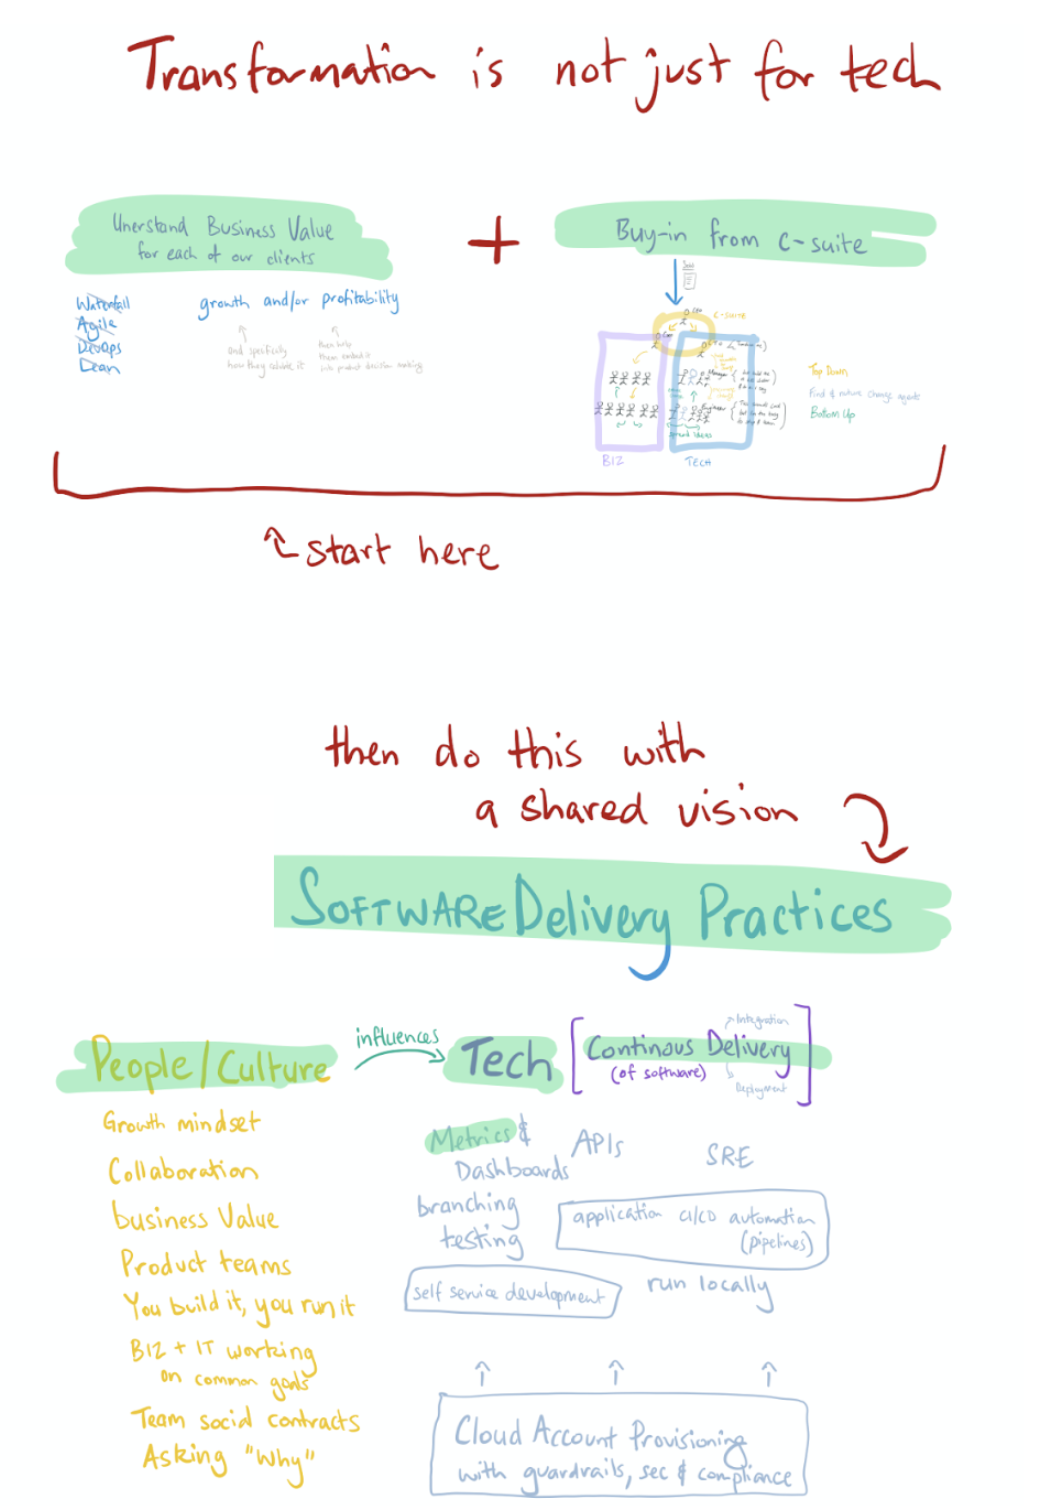 Transformation is not just for tech
Unerstand Business Value
for each of our clients
+
Buy-in from C-suite
Waterfall
Agile
DevOps
Lean
growth and/or profitability
and specifically
how they calculate it
then help
them embed it
into product decision making
CEO
C-suite
Manager
Engineer
spread ideas
BIZ
TECH
Top Down
Find & nurture change agents
Bottom Up
start here
then do this with
a shared vision
SOFTWARE Delivery Practices
People/Culture
influences
Tech
Continous Delivery
(of software)
Integration
Deployment
Growth mindset
Collaboration
business Value
Product teams
You build it, you run it
BIZ + IT working
on common goals
Team social contracts
Asking "Why"
Metrics &
Dashboards
APIs
SRE
branching
testing
application CI/CD automation
(pipelines)
self service development
run locally
Cloud Account Provisioning
with guardrails, sec & compliance